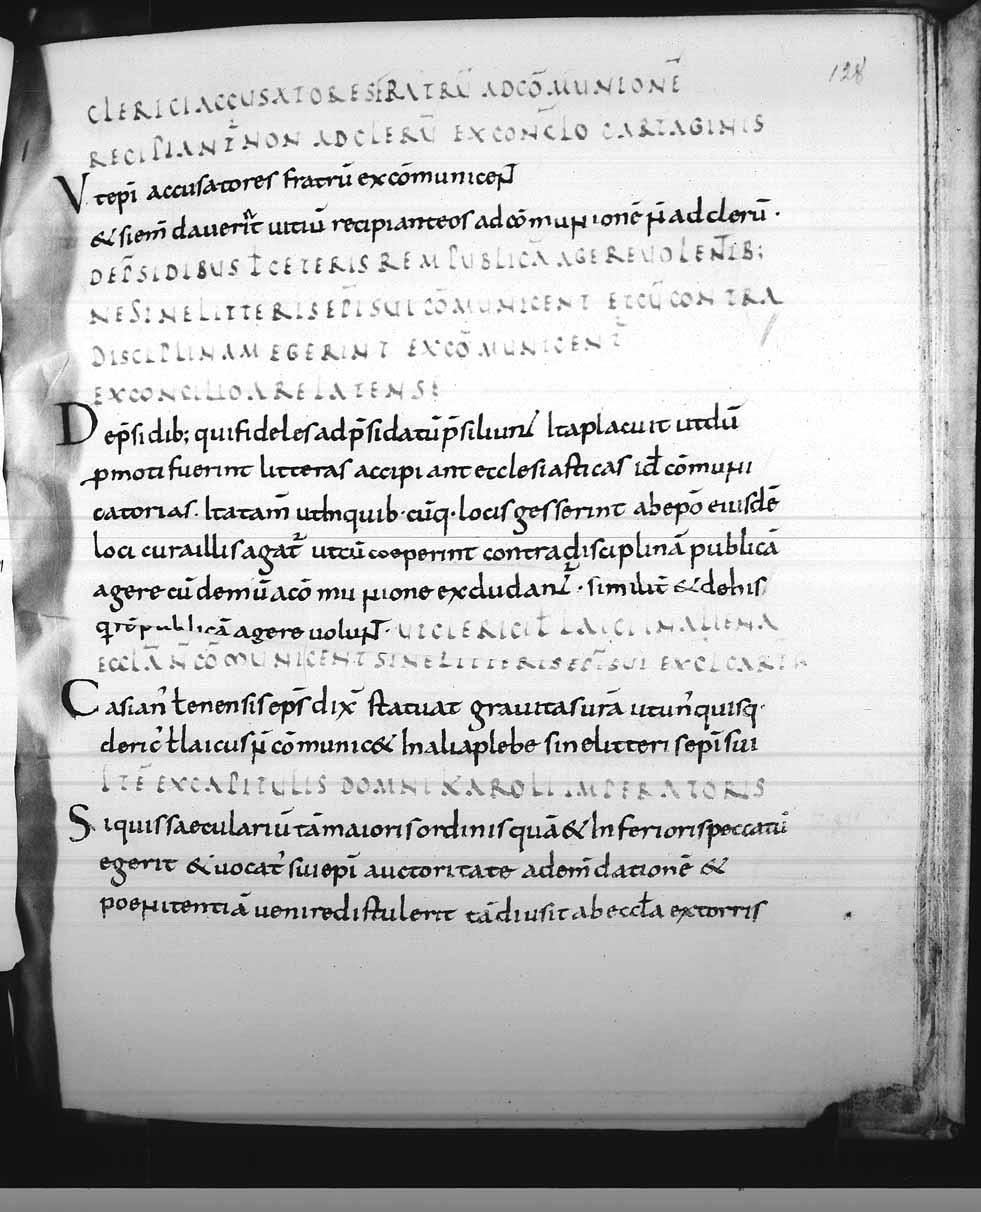 128
CLERICI ACCUSATORES FRATRU̅ AD CO̅MUNIONE̅
RECIPIANT̅ NON AD CLERU̅ EX CONC̅LO CARTAGINIS
Ut epi̅ accusatores fratru̅ exco̅municent̅
& si em̅daverint̅ vitiu̅ recipiant eos ad co̅munione̅ n̅ ad cleru̅ ·
DE PS̅IDIBUS ł CETERIS REM PUBLICA̅ AGERE VOLENTIB;
NE SINE LITTERIS EPI̅ SUI CO̅MUNICENT ET CU̅ CONTRA
DISCIPLINAM EGERINT EXCO̅MUNICENT̅
EX CONCILIO ARELATENSE
De ps̅idib; qui fideles ad ps̅idatu̅ ps̅iliunt Ita placuit ut du̅
p̱moti fuerint litteras accipiant ecclesiasticas id̅ co̅muni
catorias. Ita tam̅ ut In quib· cu̅q· locis gesserint ab epo̅ eiusde̅
loci cura illis agat̅ ut cu̅ coeperint contra disciplina̅ publica̅
agere cu̅ demu̅ a co̅munione excludant̅ · similit̅ & de his
q re̅publica̅ agere volunt· UT CLERICI ł LAICI IN ALIENA
ECCLA̅ N̅ CO̅MUNICENT SINE LITTERIS EPI̅ SUI EX CL̅ CARTA
Casian' łenensis eps̅ dix̅ statuat gravitas vr̅a ut un'quisq·
cleric' ł laicus n̅ co̅munic& In alia plebe sine litteris epi̅ sui
ITE̅ EX CAPITULIS DOMNI KAROLI IMPERATORIS
Si quis saeculariu̅ ta̅ maioris ordinis qua̅ & Inferioris peccatu̅
egerit & vocat' sui epi̅ auctoritate ad em̅datione̅ &
poenitentia̅ venire distulerit ta̅diu sit ab eccl̅a extorris